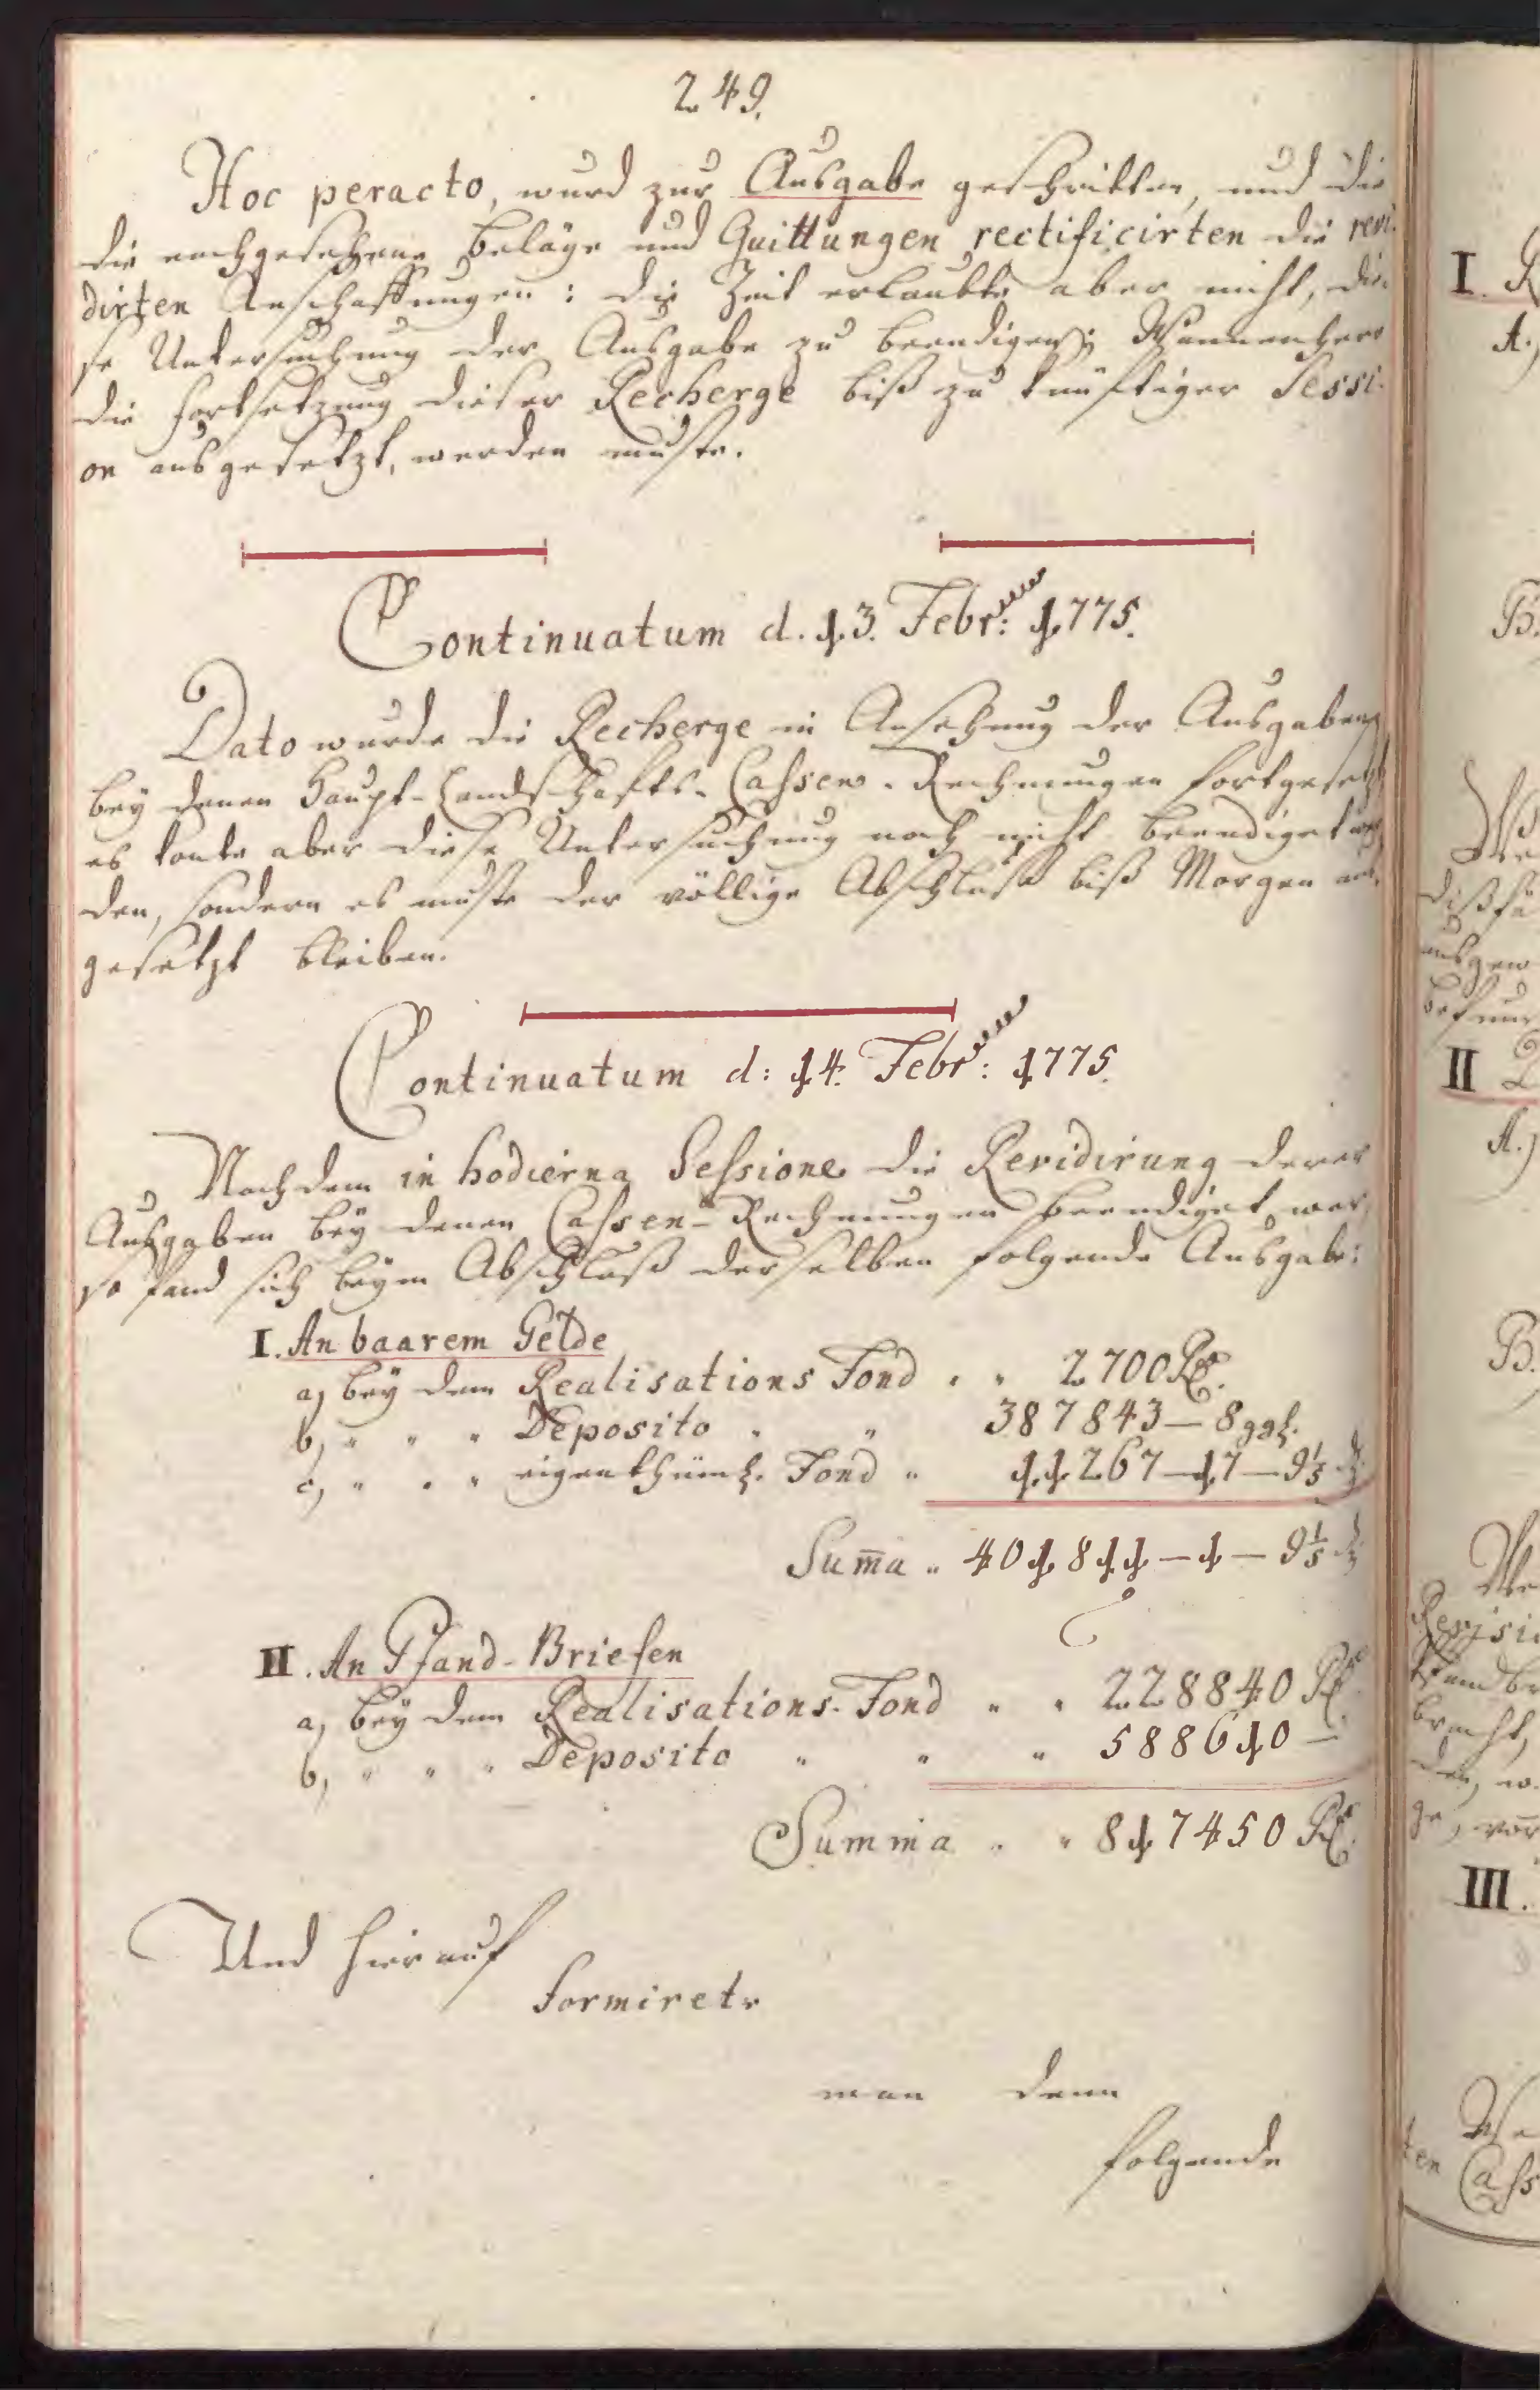 249.
Hoc peracto, wurd zur Ausgabe geschritten, und die
die nachgesehene Beläge und Quittungen rectificirten die revi-
dirten Anschaffungen: die Zeit erlaubte aber nicht, die-
se Untersuchung der Ausgabe zu beendigen; Wannenhero
die Fortsetzung dieser Recherge biß zu künftiger Sessi-
on ausgesetzt, werden muste.
Continuatum d. 13. Febr: 1775.
Dato wurde die Recherge in Ansehung der Ausgaben
bey denen Haupt-Landschafts-Cassen-Rechnungen fortgesetzt
es konte aber diese Untersuchung noch nicht beendiget wer
den, sondern es muste der völlige Abschluß biß Morgen aus-
gesetzt bleiben.
Continuatum d: 14. Febr: 1775.
Nachdem in hodierna Sessione die Revidirung derer
Ausgaben bey denen Cassen-Rechnungen beendiget war,
so fand sich beym Abschluß derselben folgende Ausgabe:
I. An baarem Gelde
a, bey dem Realisations Fond " " 2700 Rt.
b, " " " Deposito " " 387843 — 8 ggl.
c, " " " eigenthüml. Fond " 11267 — 17 — 9 1/5 d
Sum̄a " 401811 — 1 — 9 1/5 d
II. An Pfand-Briefen
a, bey dem Realisations-Fond " " 228840 Rt.
b, " " " Deposito " " " 588610 —
Summa " " 817450 Rt.
Und hierauf
formirete
man denn
folgende
I.
A.)
B.
dißfä
ausgew
befun
II
A.)
B.
We
Revisi
Pfandbr
bracht,
den, w
ge, vor
III.
We
ten Cass